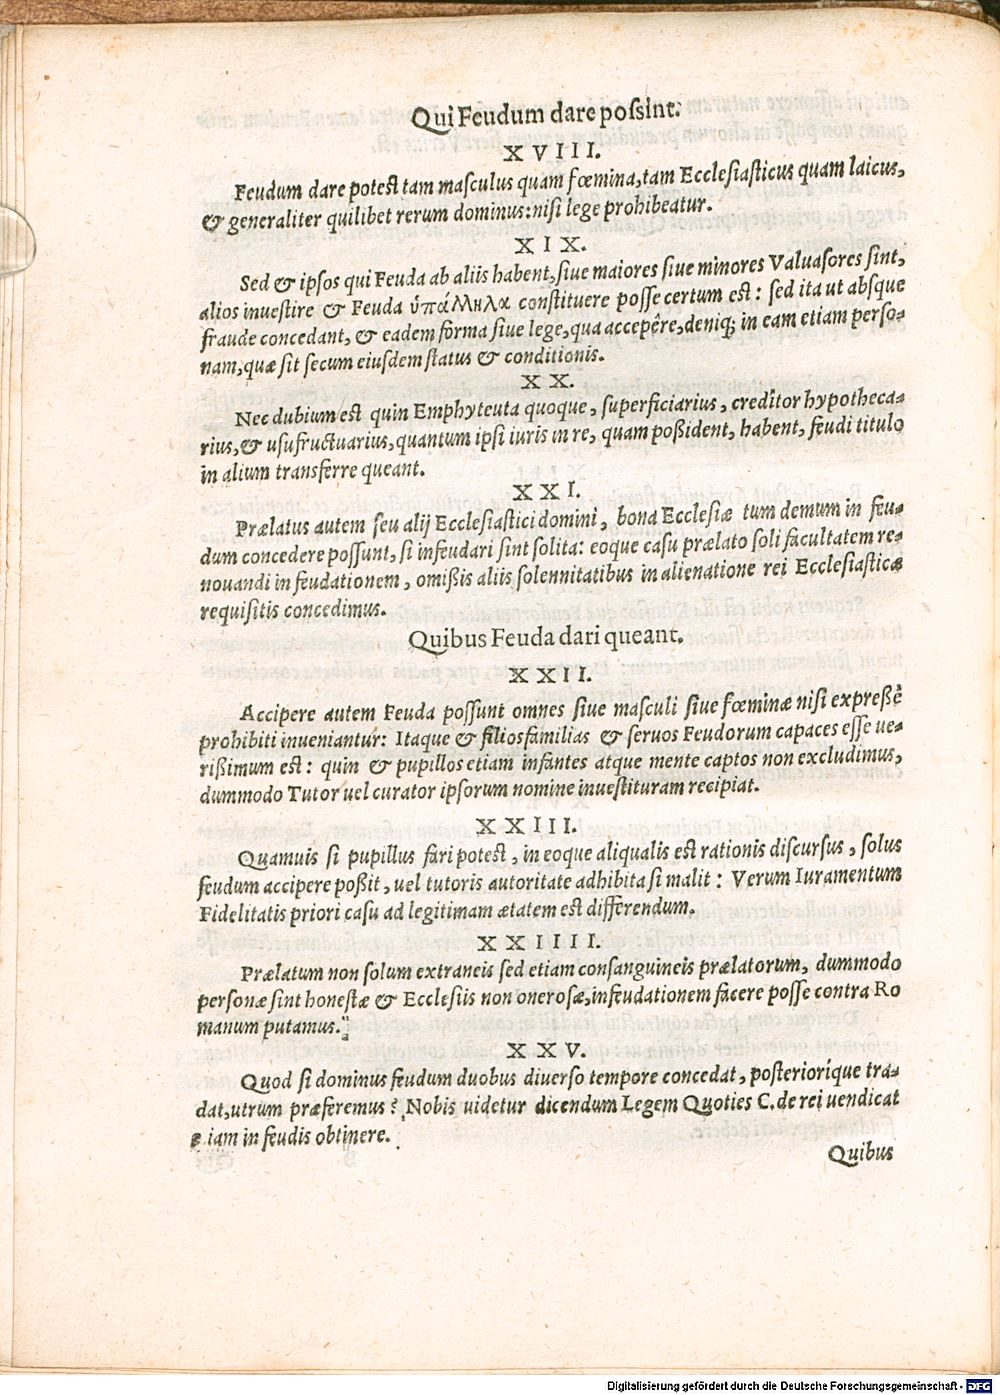 Qui Feudum dare poſsint.
XVIII.
Feudum dare poteſt tam maſculus quam fœmina, tam Eccleſiaſticus quam laicus,
& generaliter quilibet rerum dominus: niſi lege prohibeatur.
XIX.
Sed & ipſos qui Feuda ab aliis habent, ſiue maiores ſiue minores Valuaſores ſint,
alios inueſtire & Feuda ὑπάλληλα conſtituere poſſe certum eſt: ſed ita ut absque
fraude concedant, & eadem forma ſiue lege, qua accepêre, deniq; in eam etiam perſo-
nam, quæ ſit ſecum eiuſdem ſtatus & conditionis.
XX.
Nec dubium eſt quin Emphyteuta quoque, ſuperficiarius, creditor hypotheca-
rius, & uſufructuarius, quantum ipſi iuris in re, quam poßident, habent, feudi titulo
in alium transferre queant.
XXI.
Prælatus autem ſeu alij Eccleſiaſtici domini, bona Eccleſiæ tum demum in feu-
dum concedere poſſunt, ſi infeudari ſint ſolita: eoque caſu prælato ſoli facultatem re-
nouandi in feudationem, omißis aliis ſolennitatibus in alienatione rei Eccleſiaſticæ
requiſitis concedimus.
Quibus Feuda dari queant.
XXII.
Accipere autem Feuda poſſunt omnes ſiue maſculi ſiue fœminæ niſi expreßè
prohibiti inueniantur: Itaque & filiosfamilias & ſeruos Feudorum capaces eſſe ue-
rißimum eſt: quin & pupillos etiam infantes atque mente captos non excludimus,
dummodo Tutor uel curator ipſorum nomine inueſtituram recipiat.
XXIII.
Quamuis ſi pupillus fari poteſt, in eoque aliqualis eſt rationis diſcurſus, ſolus
feudum accipere poßit, uel tutoris autoritate adhibita ſi malit: Verum Iuramentum
Fidelitatis priori caſu ad legitimam ætatem eſt differendum.
XXIIII.
Prælatum non ſolum extraneis ſed etiam conſanguineis prælatorum, dummodo
perſonæ ſint honeſtæ & Eccleſiis non oneroſæ, infeudationem facere poſſe contra Ro
manum putamus.
XXV.
Quod ſi dominus feudum duobus diuerſo tempore concedat, poſteriorique tra-
dat, utrum præferemus? Nobis uidetur dicendum Legem Quoties C. de rei uendicat
e iam in feudis obtinere.
Quibus
Digitalisierung gefördert durch die Deutsche Forschungsgemeinschaft - DFG